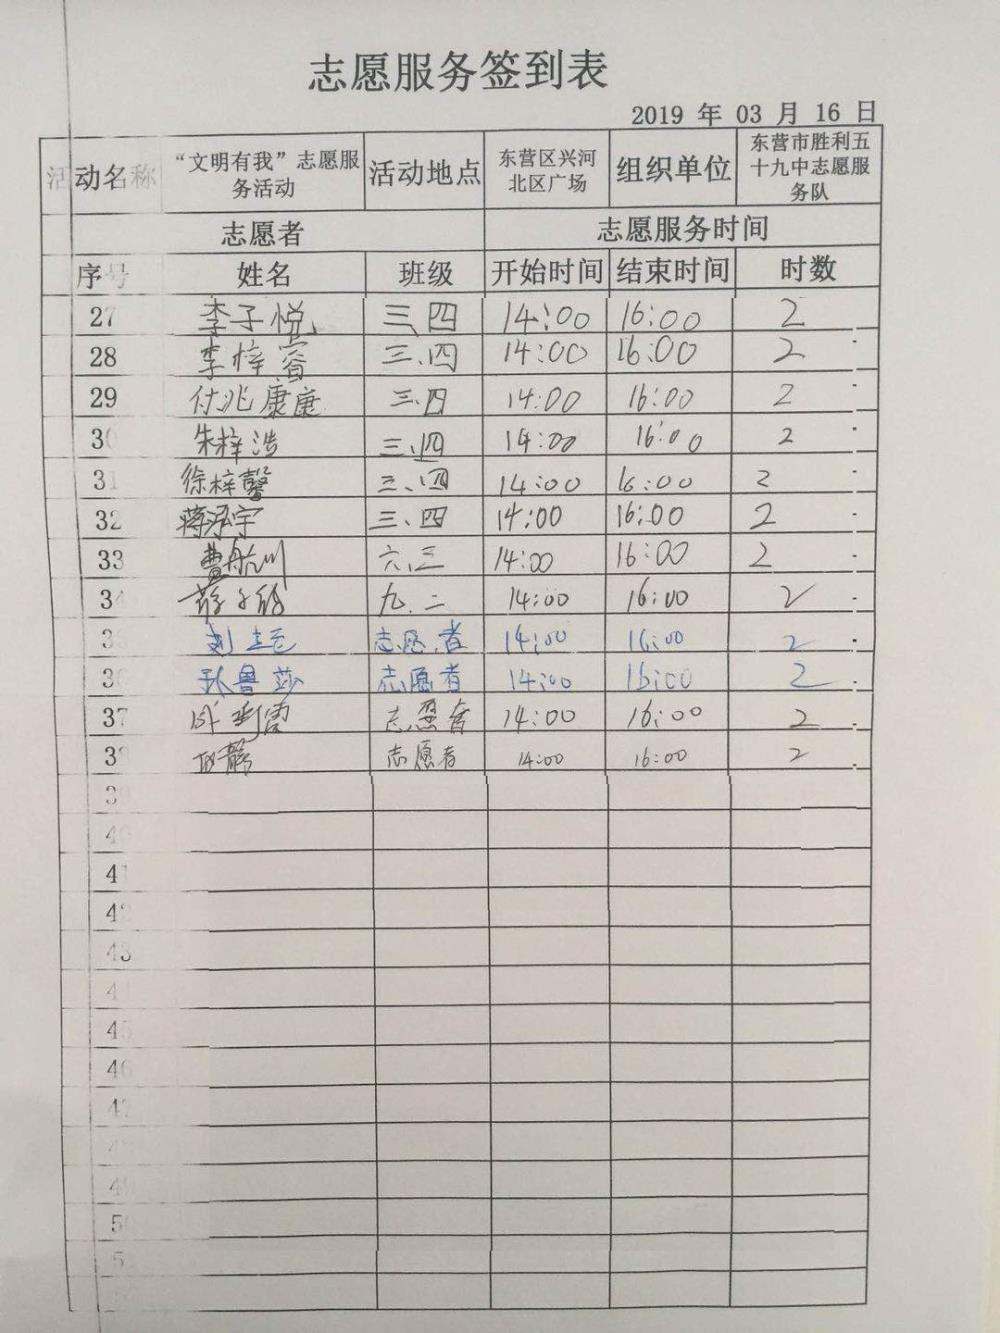 志愿服务签到表
2019 年 03 月 16 日
活动名称 “文明有我”志愿服务活动 活动地点 东营区兴河北区广场 组织单位 东营市胜利五十九中志愿服务队
志愿者 志愿服务时间
序号 姓名 班级 开始时间 结束时间 时数
27 李子悦 三.四 14:00 16:00 2
28 李梓睿 三.四 14:00 16:00 2
29 付兆康康 三.四 14:00 16:00 2
30 朱梓浩 三.四 14:00 16:00 2
31 徐梓馨 三、四 14:00 16:00 2
32 蒋泓宇 三、四 14:00 16:00 2
33 曹航川 六.三 14:00 16:00 2
34 九.二 14:00 16:00 2
35 刘 志愿者 14:00 16:00 2
36 鲁莎 志愿者 14:00 16:00 2
37 志愿者 14:00 16:00 2
38 志愿者 14:00 16:00 2
39
40
41
42
43
44
45
46
47
48
49
50
51